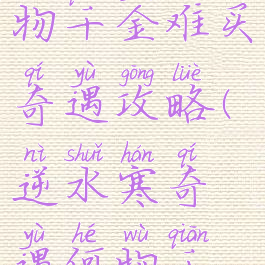 物千金难买
qí yù gōng lüè
奇遇攻略(
nì shuǐ hán qí
逆水寒奇
yù hé wù qiān
遇何物千